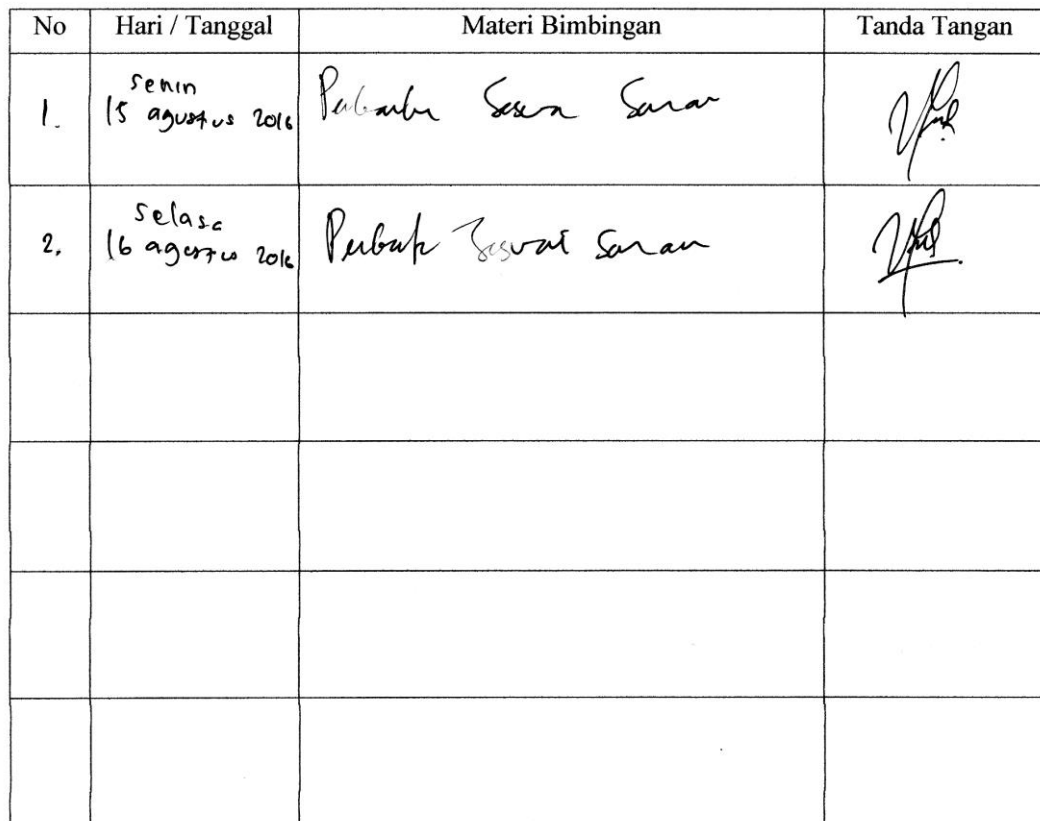 No Hari / Tanggal Materi Bimbingan Tanda Tangan
1. senin
15 agustus 2016 Sesuai Saran
2. selasa
16 agustus 2016 Perbaiki Sesuai Saran